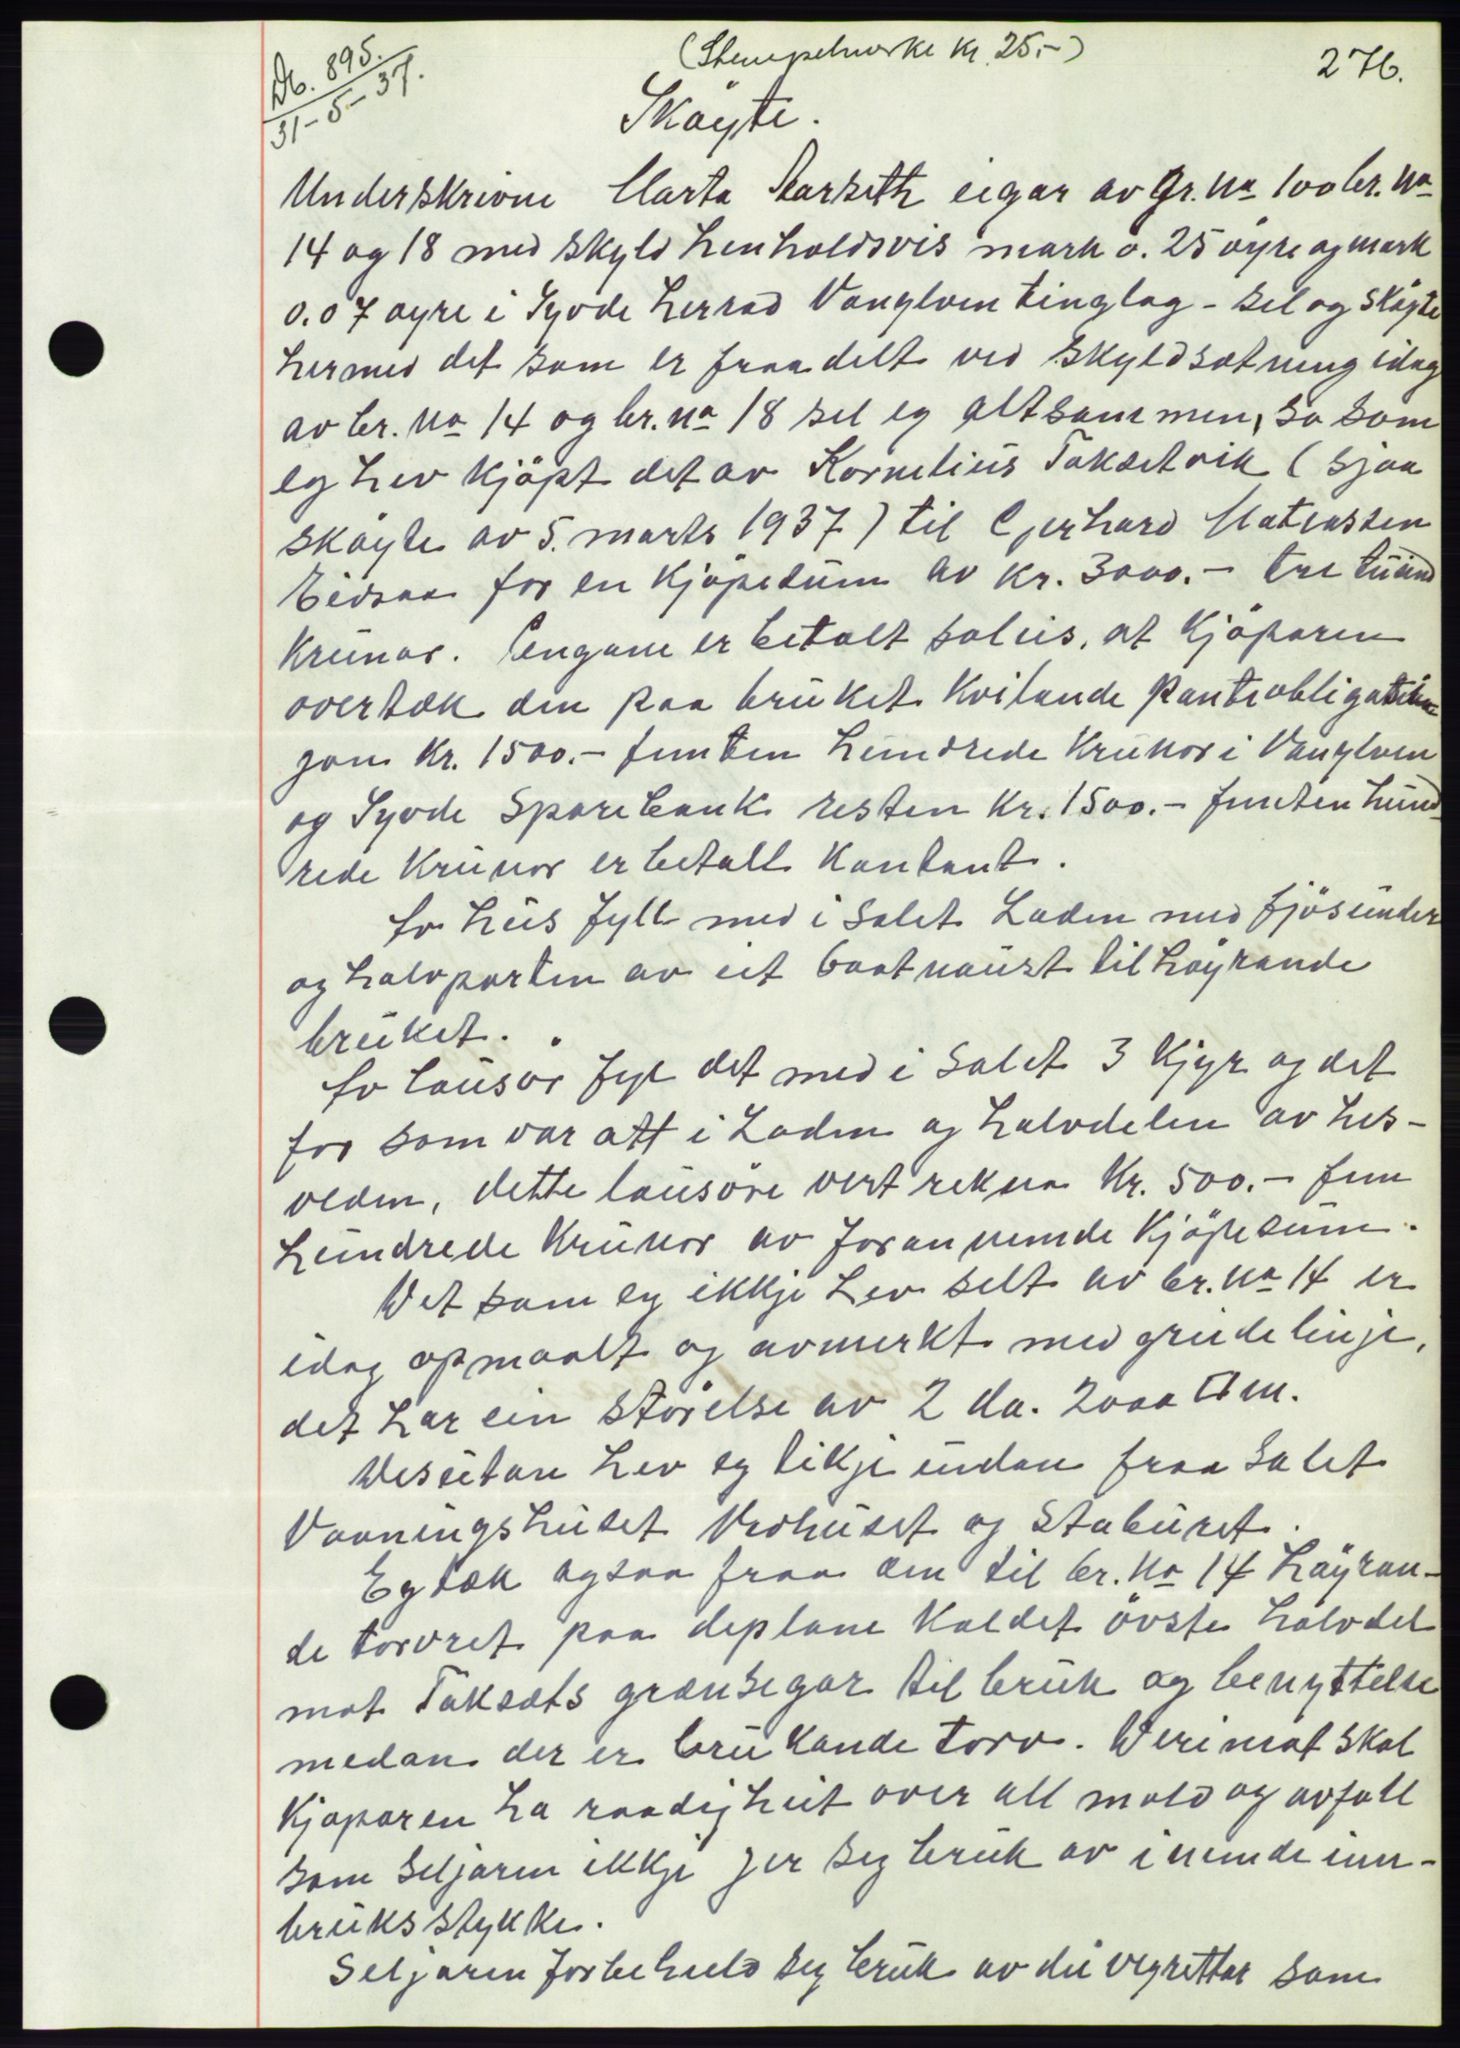 (Stempelmerke kr. 25.-)
276.
Db. 895.
31-5-37.
Sköyte.
Underskrivne Marta Aarseth eigar av gr. no 100 br. no
14 og 18 med skyld henholdsvis mark o. 25 øyre og mark
0.07 øyre i Syvde herrad Vanylven tinglag - sel og sköyte
hermed det som er fraadelt ved skyldsætning idag
av br. no 14 og br. no 18 sel eg altsammen, so som
eg hev kjöpt det av Kornelius Taksetvik (sjaa
sköyte av 5. marts 1937) til Gjerhard Matiassen
Eidsaa for en kjöpesum av kr. 3000.- tre tuusind
krunor. Pengane er betalt soleis, at kjöparen
overtæk den paa bruket kvilande pantobligation
jon kr. 1500.- femten hundrede krunor i Vanylven
og Syvde Sparebank resten kr. 1500.- femten hund
rede krunor er betalt kontant.
Av hus fylt med i salet Laden med fjös under
og halvparten av eit baatnaust tilhöyrande
bruket.
Av lausör fyl det med i salet 3 kjyr og det
for som var att i Laden og halvdelen av hes-
veden, dette lausöre vert rekna kr. 500.- fem
hundrede krunor av forannemde kjöpesum.
Det som eg ikkje hev selt av br. no 14 er
idag opmaalt og avmerkt med grudelinje,
det har ein störelse av 2 da. 2000 □m.
Desutan hev eg tikje undan fraa salet
Vaaningshuset Vedhuset og Staburet.
Eg tæk ogsaa fraa den til br. no 14 höyran-
de torvret paa deplane kaldet övste halvdel
mot Taksæts grænsegar til bruk og benyttelse
medan der er brukande torv. Derimot skal
kjöparen ha raadigheit over all mold og avfall
som seljaren ikkje jer seg bruk av i nemde inn-
bruksstykke.
Seljaren forbeheld seg bruk av dei vegrettar som